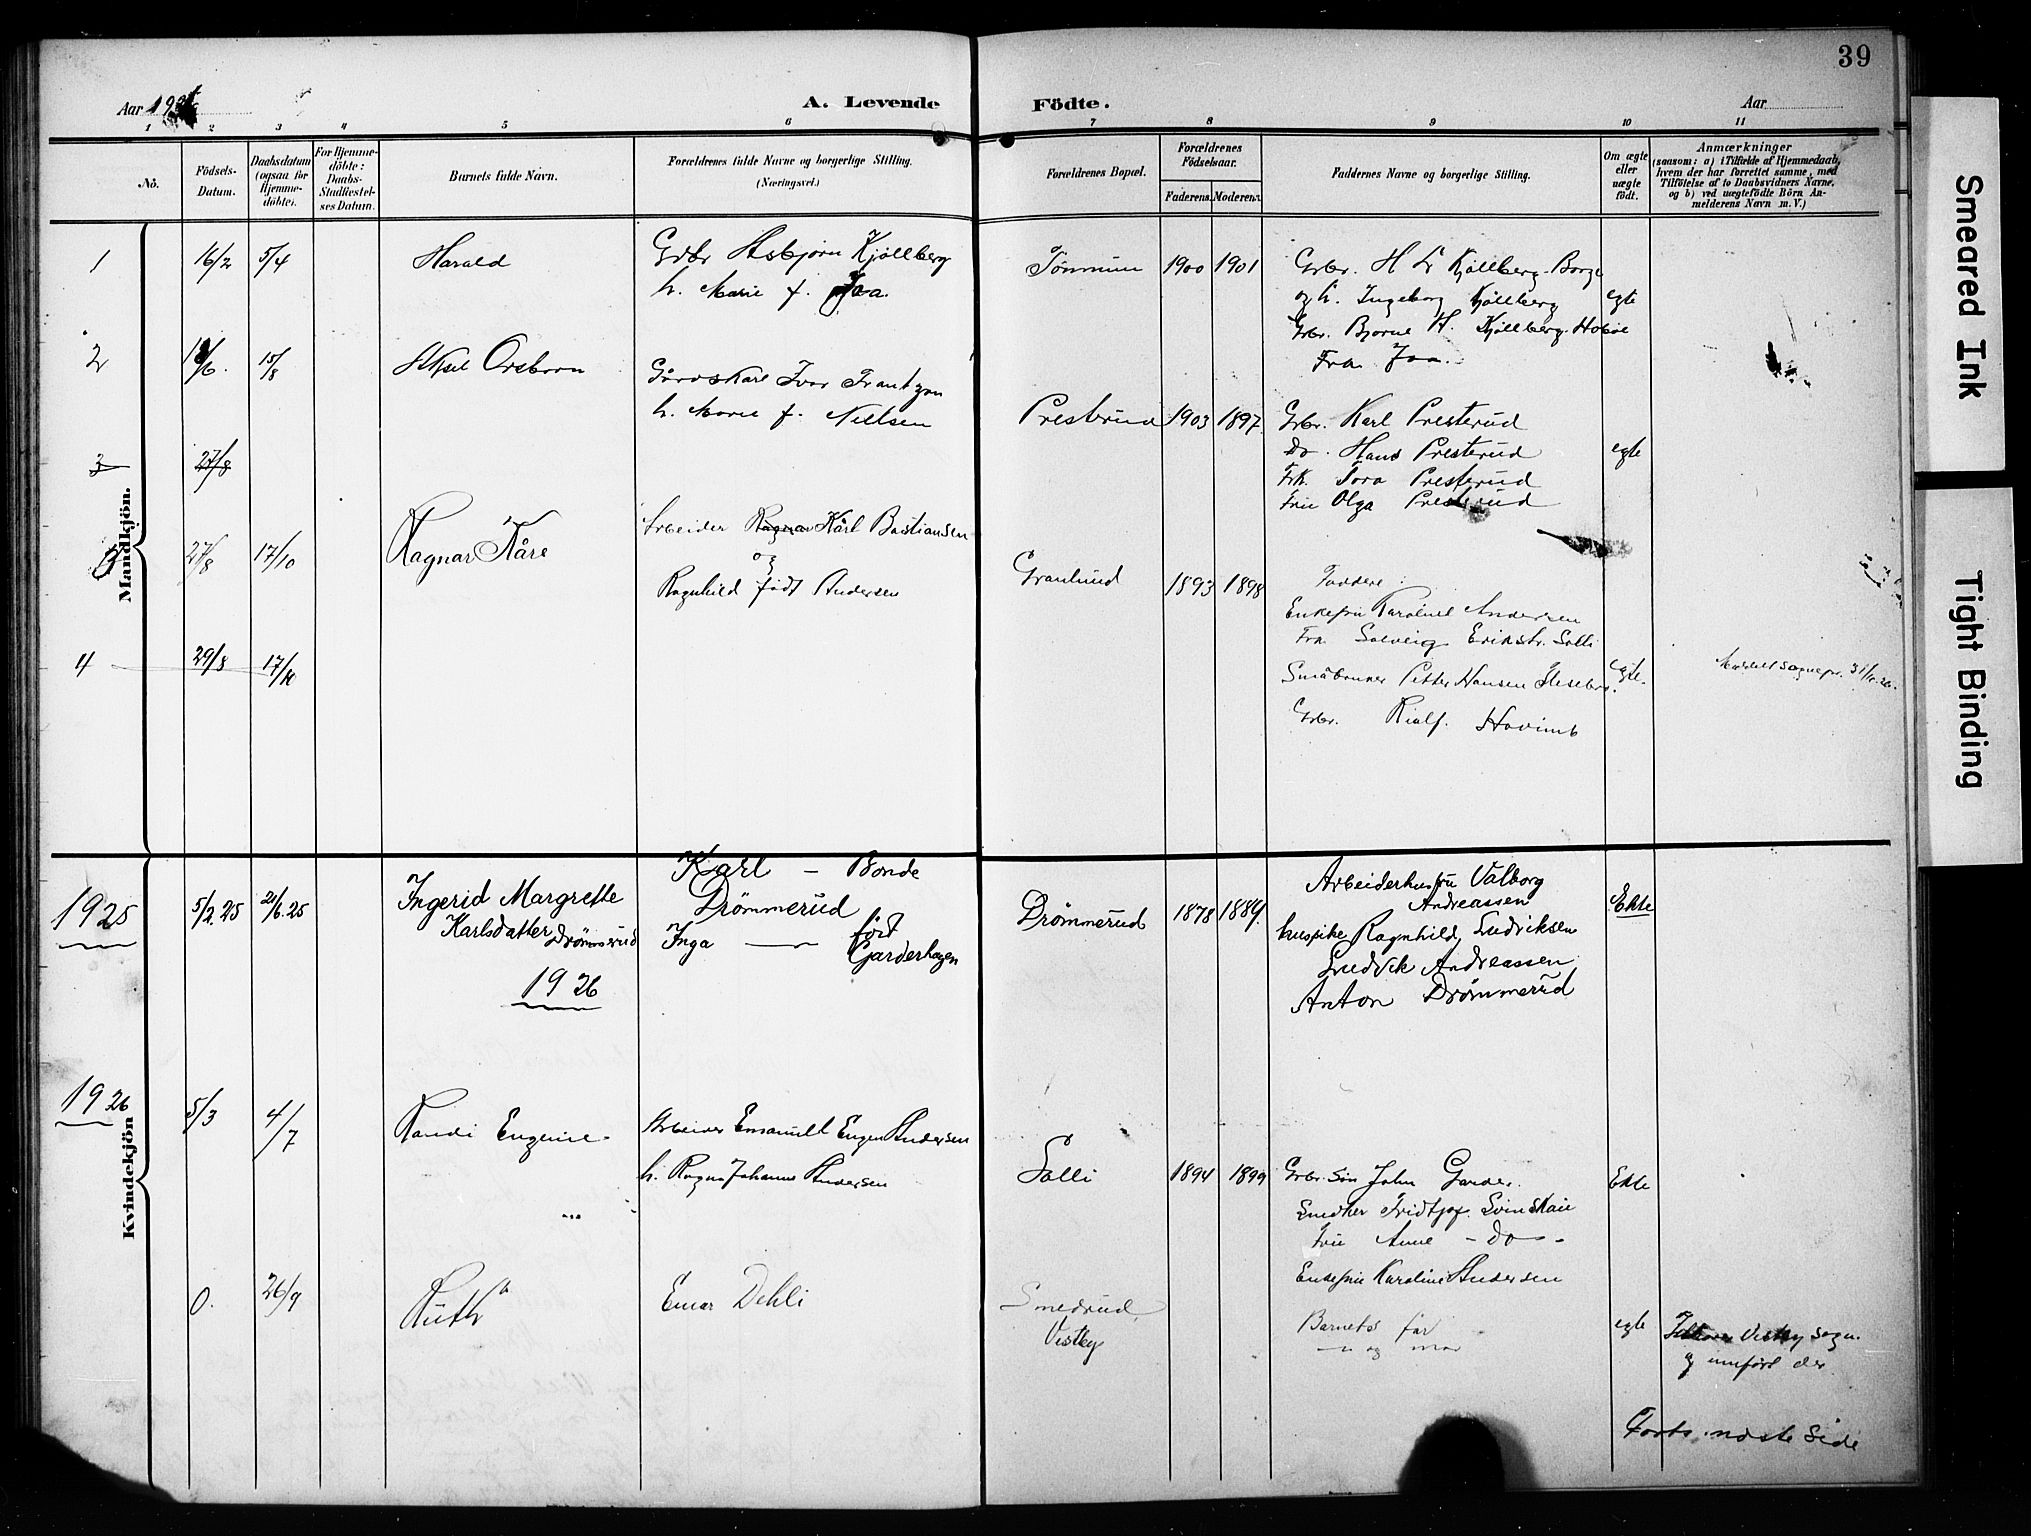 39
Aar 192
A. Levende Födte.
Aar
1 2 3 4 5 6 7 8 9 10 11
No.
Födsels-Datum.
Daabsdatum (ogsaa for Hjemme-döbte).
For Hjemme-döbte: Daabs-Stadfæstel-ses Datum.
Barnets fulde Navn.
Forældrenes fulde Navne og borgerlige Stilling.
(Næringsvei.)
Forældrenes Bopæl.
Forældrenes Födselsaar.
Faderens. Moderens.
Faddernes Navne og borgerlige Stilling.
Om ægte eller uægte födt.
Anmærkninger
(saasom: a) i Tilfælde af Hjemmedaab,
hvem der har forrettet samme, med
Tilföielse af to Daabsvidners Navne,
og b) ved uægtefödte Börn An-
melderens Navn m. V.)
Mandkjön.
1 16/2 5/4 Harald
Gbr Asbjørn Kjøllberg
h. Marie f. Jaa.
Tømmum 1900 1901
Gbr. H L Kjøllberg Borge
og h. Ingeborg Kjøllberg egte
Gbr. Bjarne H. Kjøllberg Hobøl
Frk. Jaa.
2 /6. 15/8 Aksel Orsborn
Gårdskarl Ivar Frantzen
h. Marie f. Nielsen
Presterud 1903 1897
Gbr. Karl Presterud
Do. Hans Presterud egte
Frk. Tora Presterud
Fru Olga Presterud
3 27/8
27/8 17/10 Ragnar Kåre
Arbeider Ragnar Karl Bastiansen
og
Ragnhild født Andersen
Granlund 1893 1898
Faddere:
Enkefru Karoline Andersen
Frk Solveig Erikstr. Solli
Småbruker Petter Hansen egte.
Gbr. Hovind
4 29/8 17/10
Meldt sognepr. 31/12.26.
Kvindekjön
1925 5/2.25 21/6.25 Ingerid Margrethe
Karlsdatter Drømmerud
Karl – Bonde
Drømmerud
Inga — født
Garderhagen
Drømmerud 1878 1889.
Arbeiderhustru Valborg
Andreassen
huspike Ragnhild Ludviksen
Ludvik Andreassen
Anton Drømmerud
Ekte
1926
1926 5/3 4/7 Randi Eugenie.
Arbeider Emanuell Eugen Andersen
h. Ragna Johanne Andersen
Solli 1894 1899
Gbr. søn John Garder.
Snedker Fridtjof Svinskau
Fru Anne – do –
Enkefru Karoline Andersen
Ekte
0. 26/9 Ruth
Einar Dehli
Smedrud
Vestby
Barnets far
– " og mor
egte
Vestby sogn.
og innført der
Forts. næste Side
Smeared Ink
Tight Binding